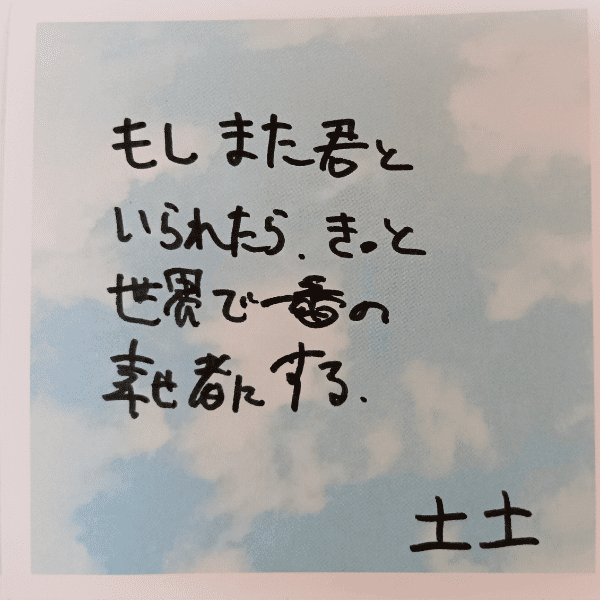 もしまた君と
いられたら、きっと
世界で一番の
幸せ者にする.
土土